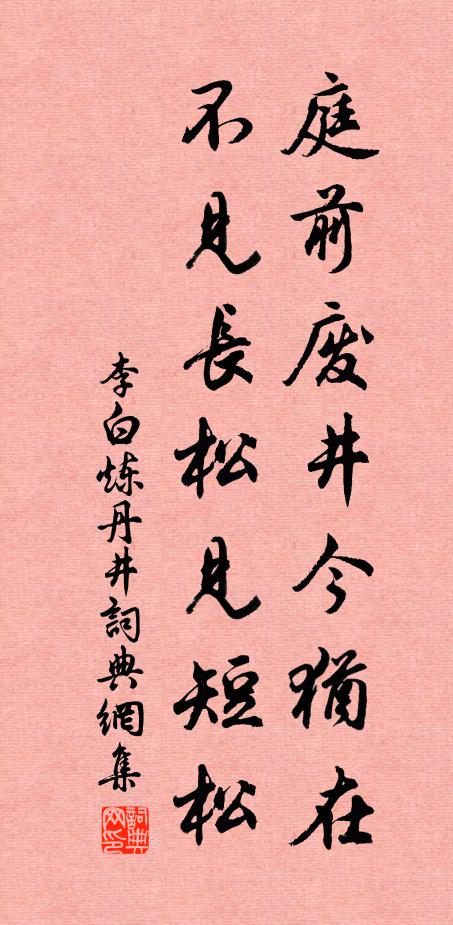 庭前废井今猶在
不見長松見短松
李白炼丹井詞典網集
詞典网印